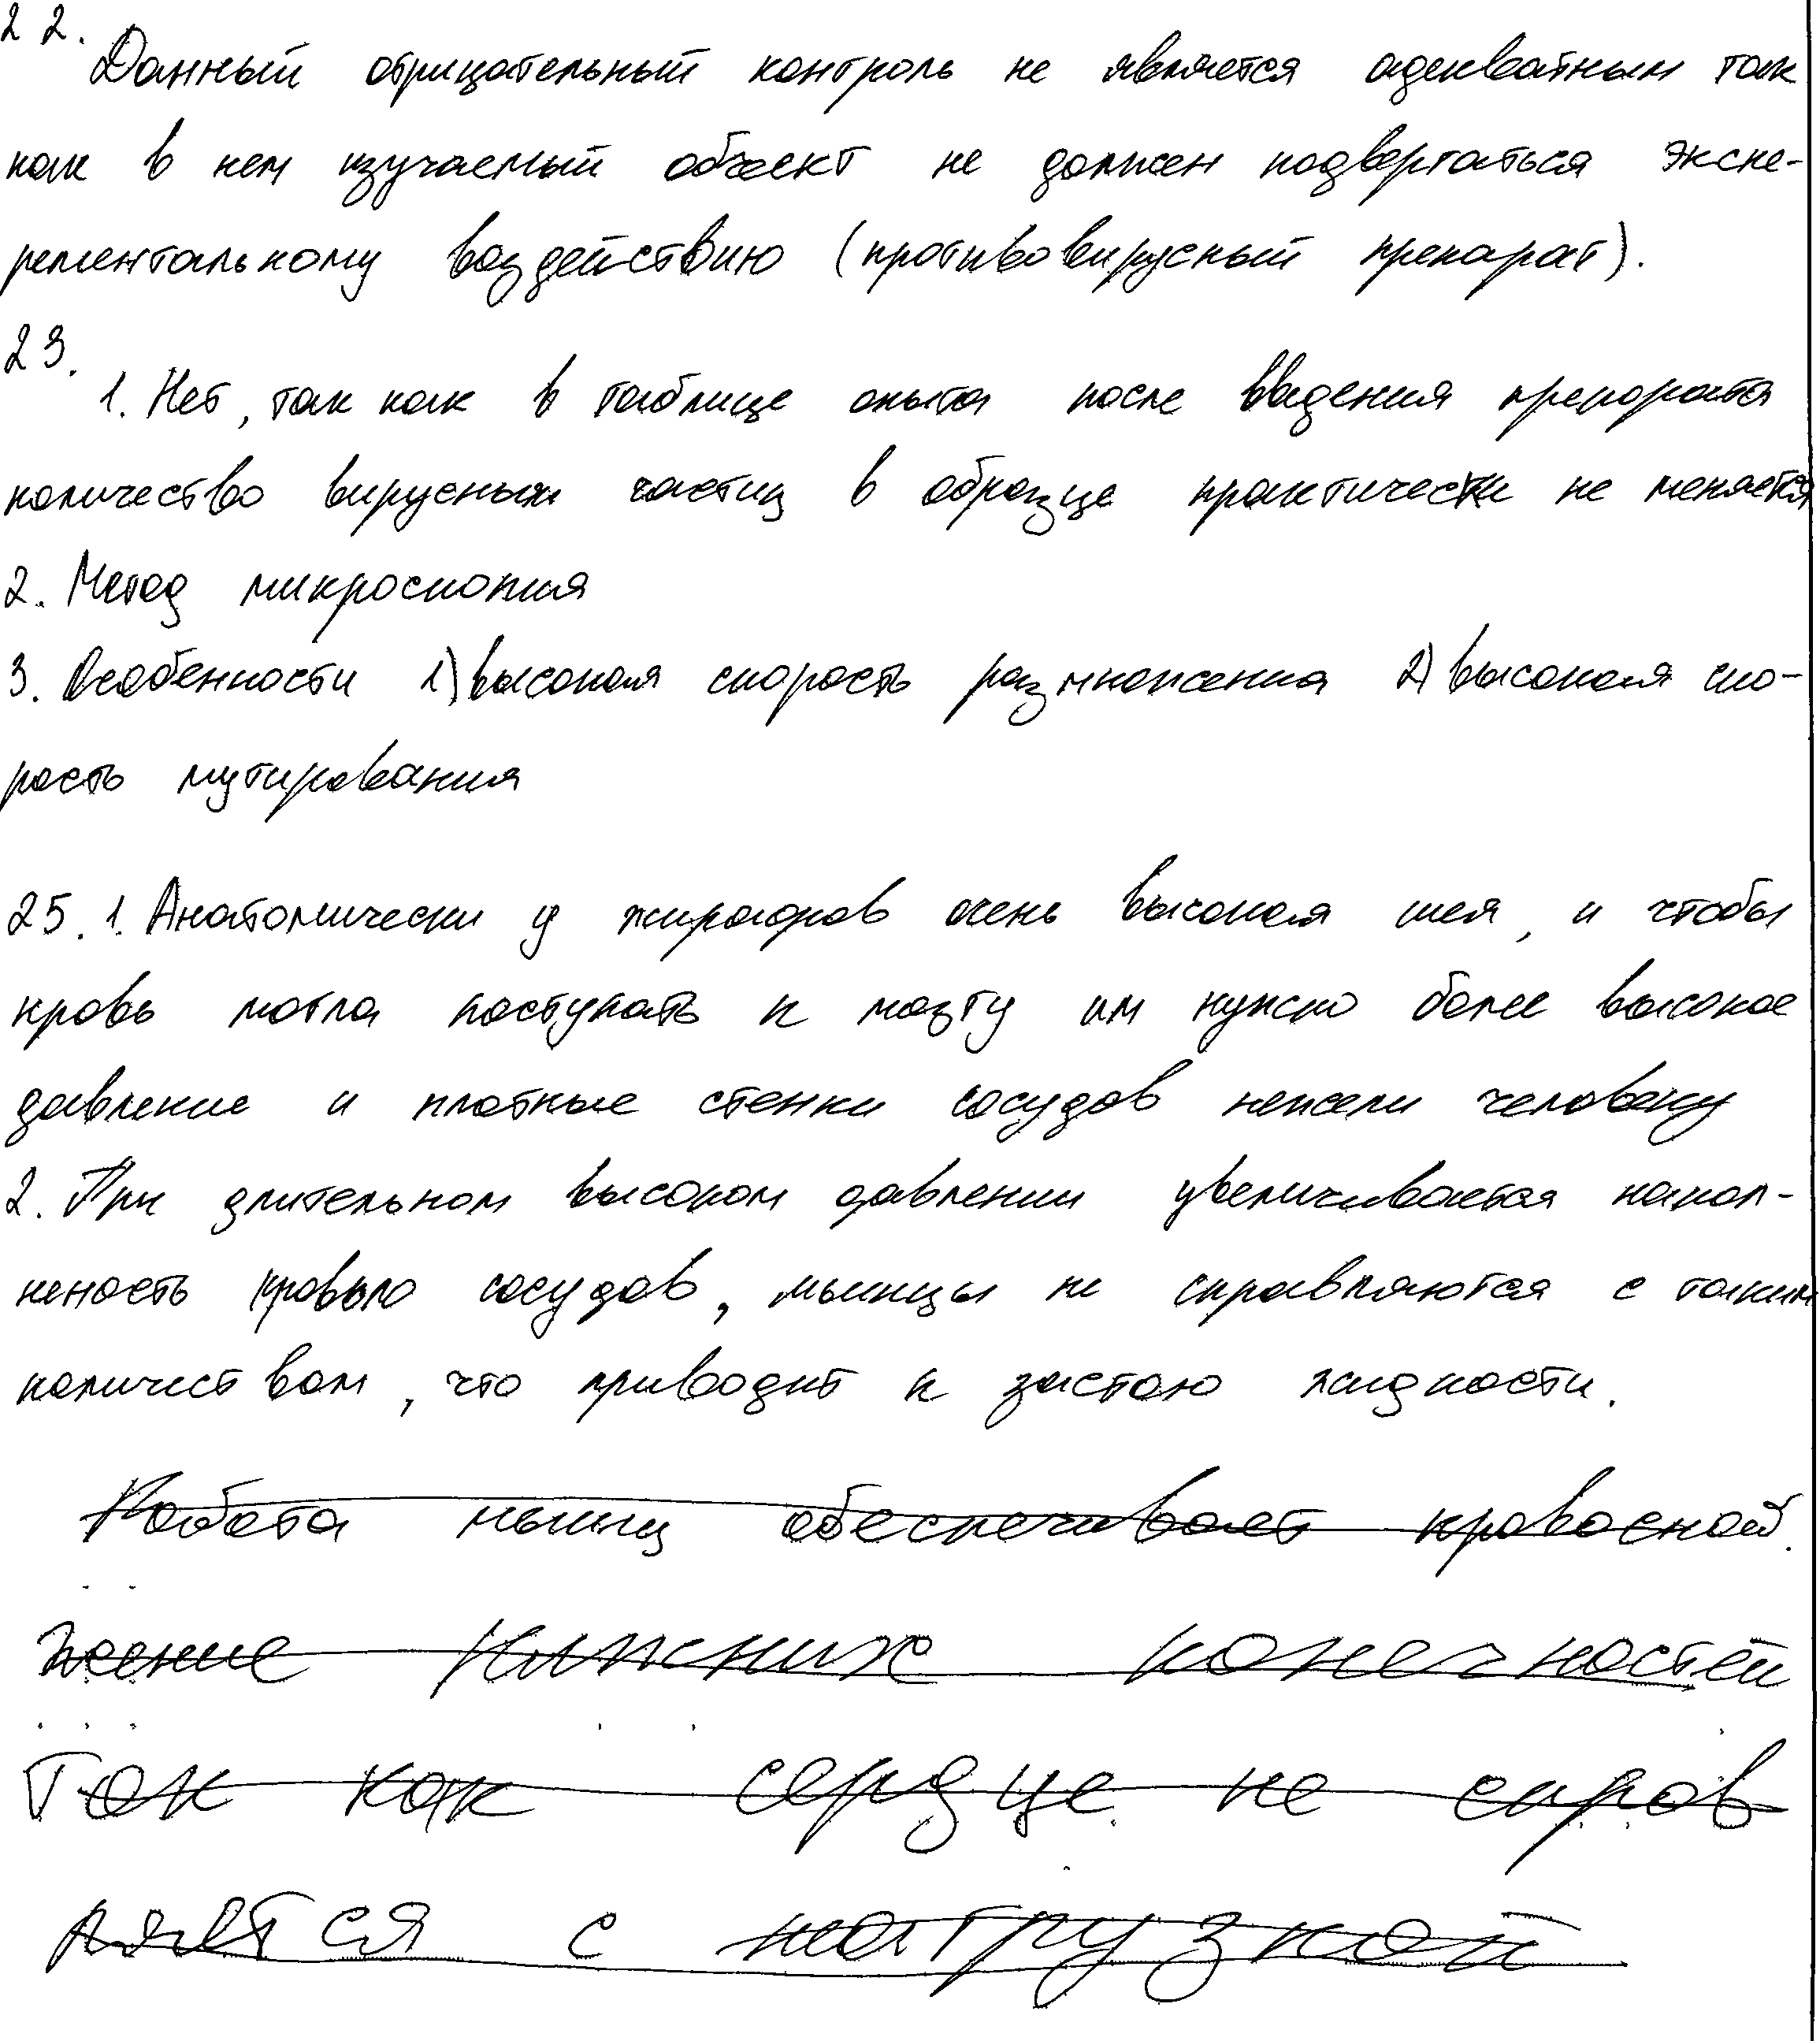 22.
Данный отрицательный контроль не является адекватным так
как в нем изучаемый объект не должен подвергаться экспе-
рементальному воздействию (противовирусный препарат).
23.
1. Нет, так как в таблице опыта после введения препората
количество вирусных частиц в образце практически не меняется
2. Метод микроскопия
3. Особенности 1) высокая скорость размножения 2) высокая ско-
рость мутирования
25. 1. Анатомически у жирафов очень высокая шея, и чтобы
кровь могла поступать к мозгу им нужно более высокое
давление и плотные стенки сосудов нежели человеку
2. При длительном высоком давлении увеличивается напол-
неность кровью сосудов, мышцы не справляются с таким
количеством, что приводит к застою жидкости.
Работа мышц обеспечивает кровосной
жение нижних конечностей
Так как сердце не справ
ляется с нагрузкой